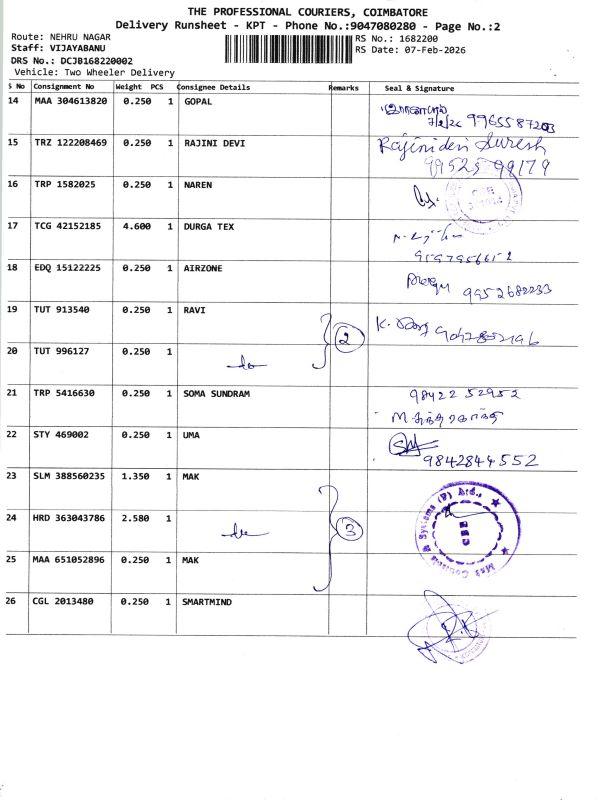 THE PROFESSIONAL COURIERS, COIMBATORE
Delivery Runsheet - KPT - Phone No.:9047080280 - Page No.:2
Route: NEHRU NAGAR
RS No.: 1682200
Staff: VIJAYABANU
RS Date: 07-Feb-2026
DRS No.: DCJB168220002
Vehicle: Two Wheeler Delivery
S No Consignment No Weight PCS Consignee Details Remarks Seal & Signature
14 MAA 304613820 0.250 1 GOPAL
7/2/26 9965587203
15 TRZ 122208469 0.250 1 RAJINI DEVI Rajinidevi Suresh
99525 99179
16 TRP 1582025 0.250 1 NAREN
17 TCG 42152185 4.600 1 DURGA TEX
9597956652
18 EDQ 15122225 0.250 1 AIRZONE
9952682233
19 TUT 913540 0.250 1 RAVI
2
20 TUT 996127 0.250 1
do
21 TRP 5416630 0.250 1 SOMA SUNDRAM 98422 52952
22 STY 469002 0.250 1 UMA
9842844552
23 SLM 388560235 1.350 1 MAK
24 HRD 363043786 2.580 1
do 3
25 MAA 651052896 0.250 1 MAK
26 CGL 2013480 0.250 1 SMARTMIND